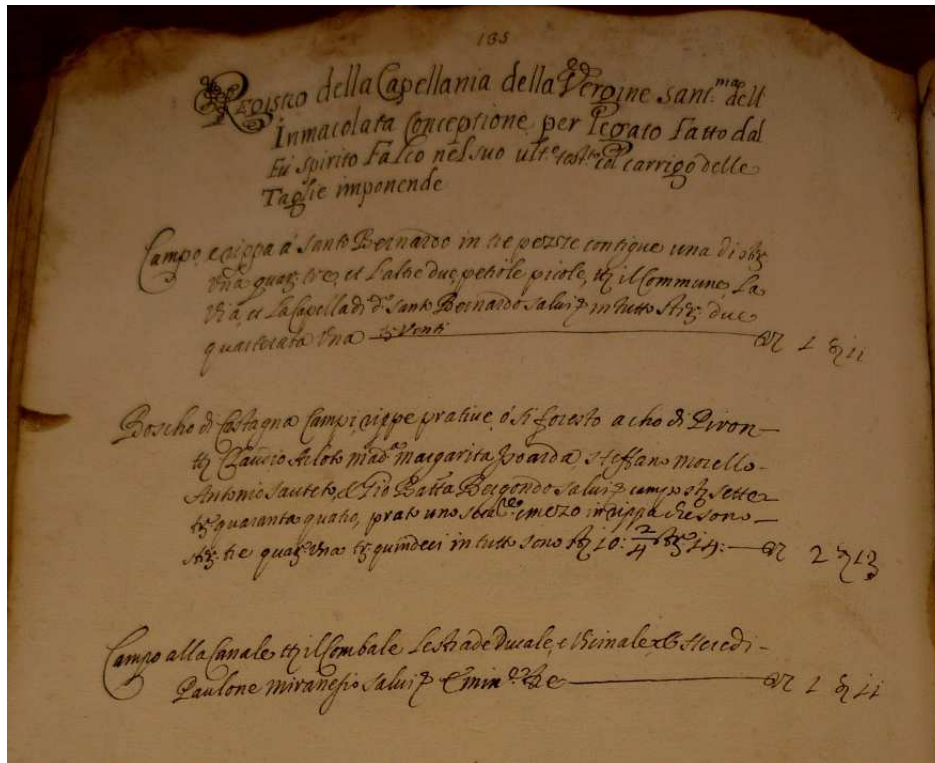 135
Registro della Capellania della Vergine Sant.ma dell
Inmacolata Conceptione per Legato Fatto dal
Fu Spirito Falco nel suo ult.o test.to col carrigo delle
Taglie imponende
Campo, e rippa á Santo Bernardo in tre pezze contigue una di
una quar: tre, et l'altre due petiole picole, il Commune, La
Via, et La Capella di d.o santo Bernardo salui in tutto due
quarterata Una Venti 1 11
Boscho di Castagna Campi, rippe prative, ó si foresto a cho di Piron
Arloto mad.a Margarita Steffano Morello
Antonio Sauteto, & Gio Batta Bergondo salui campo sette
quaranta quatro, prato uno e mezo in rippa che sono
tre quar: Una quindeci in tutto sono 10: 2/4 14: 2 13
Campo alla Canale il Combale Le strade Ducale, e Vicinale, & Heredi
Paulone Miranesio salui 1 11